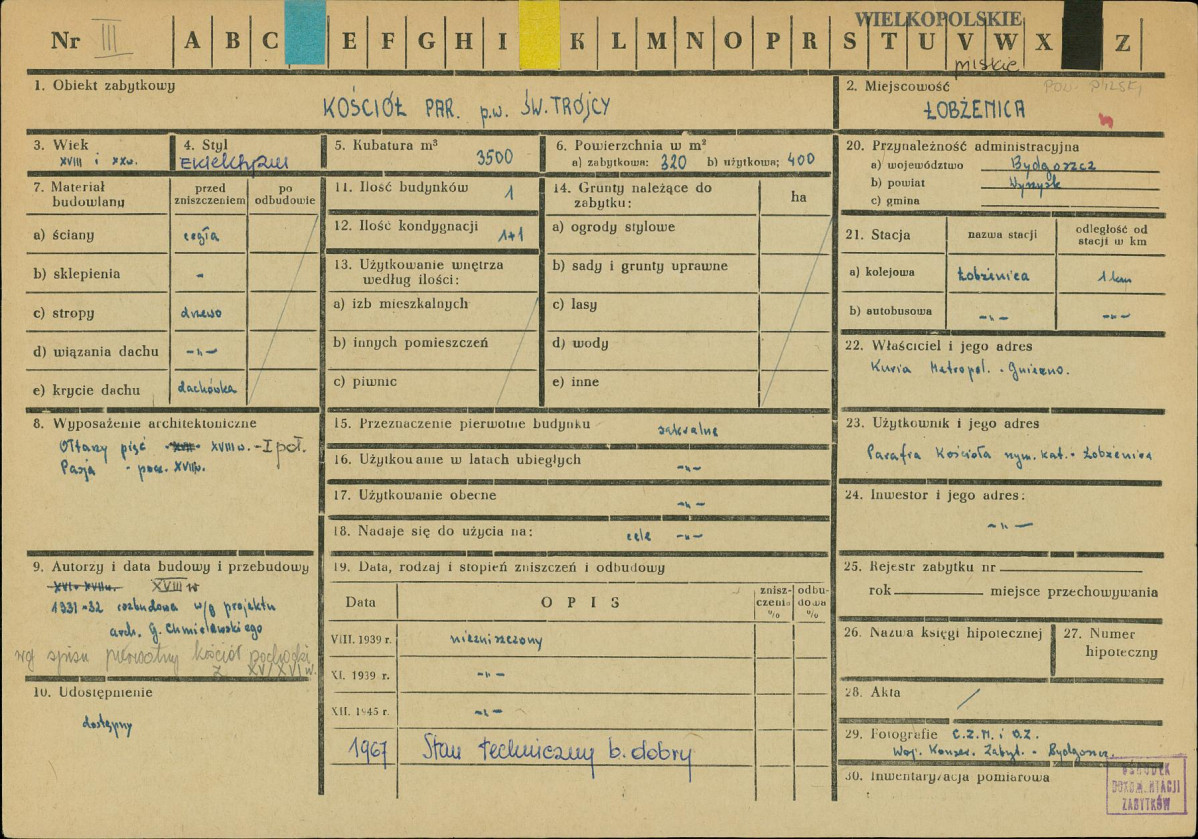 Nr III A B C E F G H I K L M N O P R S T U V W X Z
WIELKOPOLSKIE
pilskie
1. Obiekt zabytkowy
KOŚCIÓŁ PAR. p.w. ŚW. TRÓJCY
2. Miejscowość
POW. PILSKI
ŁOBŻENICA
3. Wiek
XVIII i XXw.
4. Styl
Eklektyzm
5. Kubatura m³
3500
6. Powierzchnia w m²
a) zabytkowa: 320 b) użytkowa; 400
20. Przynależność administracyjna
a) województwo Bydgoszcz
b) powiat Wyrzysk
c) gmina
7. Materiał budowlany
przed zniszczeniem
po odbudowie
a) ściany cegła
b) sklepienia -
c) stropy drzewo
d) wiązania dachu -"-
e) krycie dachu dachówka
11. Ilość budynków 1
12. Ilość kondygnacji 1+1
13. Użytkowanie wnętrza
według ilości:
a) izb mieszkalnych
b) innych pomieszczeń
c) piwnic
14. Grunty należące do
zabytku:
ha
a) ogrody stylowe
b) sady i grunty uprawne
c) lasy
d) wody
e) inne
21. Stacja
nazwa stacji
odległość od
stacji w km
a) kolejowa Łobżenica 1 km
b) autobusowa -"- -"-
22. Właściciel i jego adres
Kuria Metropol. - Gniezno.
8. Wyposażenie architektoniczne
Ołtarzy pięć XVIII w. - I poł.
Pasja - pocz. XVIIw.
15. Przeznaczenie pierwotne budynku sakralne
16. Użytkowanie w latach ubiegłych -"-
17. Użytkowanie obecne -"-
18. Nadaje się do użycia na: cele -"-
23. Użytkownik i jego adres
Parafia Kościoła rzym. kat. - Łobżenica
24. Inwestor i jego adres:
-"-
9. Autorzy i data budowy i przebudowy
XVI-XVIIw. XVIII w
1931-32 rozbudowa w/g projektu
arch. G. Chmielewskiego
wg spisu pierwotny kościół pochodzi
z XV/XVI w.
10. Udostępnienie
dostępny
19. Data, rodzaj i stopień zniszczeń i odbudowy
Data
OPIS
znisz-
czenia
%
odbu-
dowa
%
VIII. 1939 r. niezniszczony
XI. 1939 r. -"-
XII. 1945 r. -"-
1967 Stan techniczny b. dobry
25. Rejestr zabytku nr
rok miejsce przechowywania
26. Nazwa księgi hipotecznej
27. Numer
hipoteczny
28. Akta
29. Fotografie C.Z.M. i O.Z.
Woj. Konser. Zabyt. - Bydgoszcz.
30. Inwentaryzacja pomiarowa
OŚRODEK
DOKUMENTACJI
ZABYTKÓW